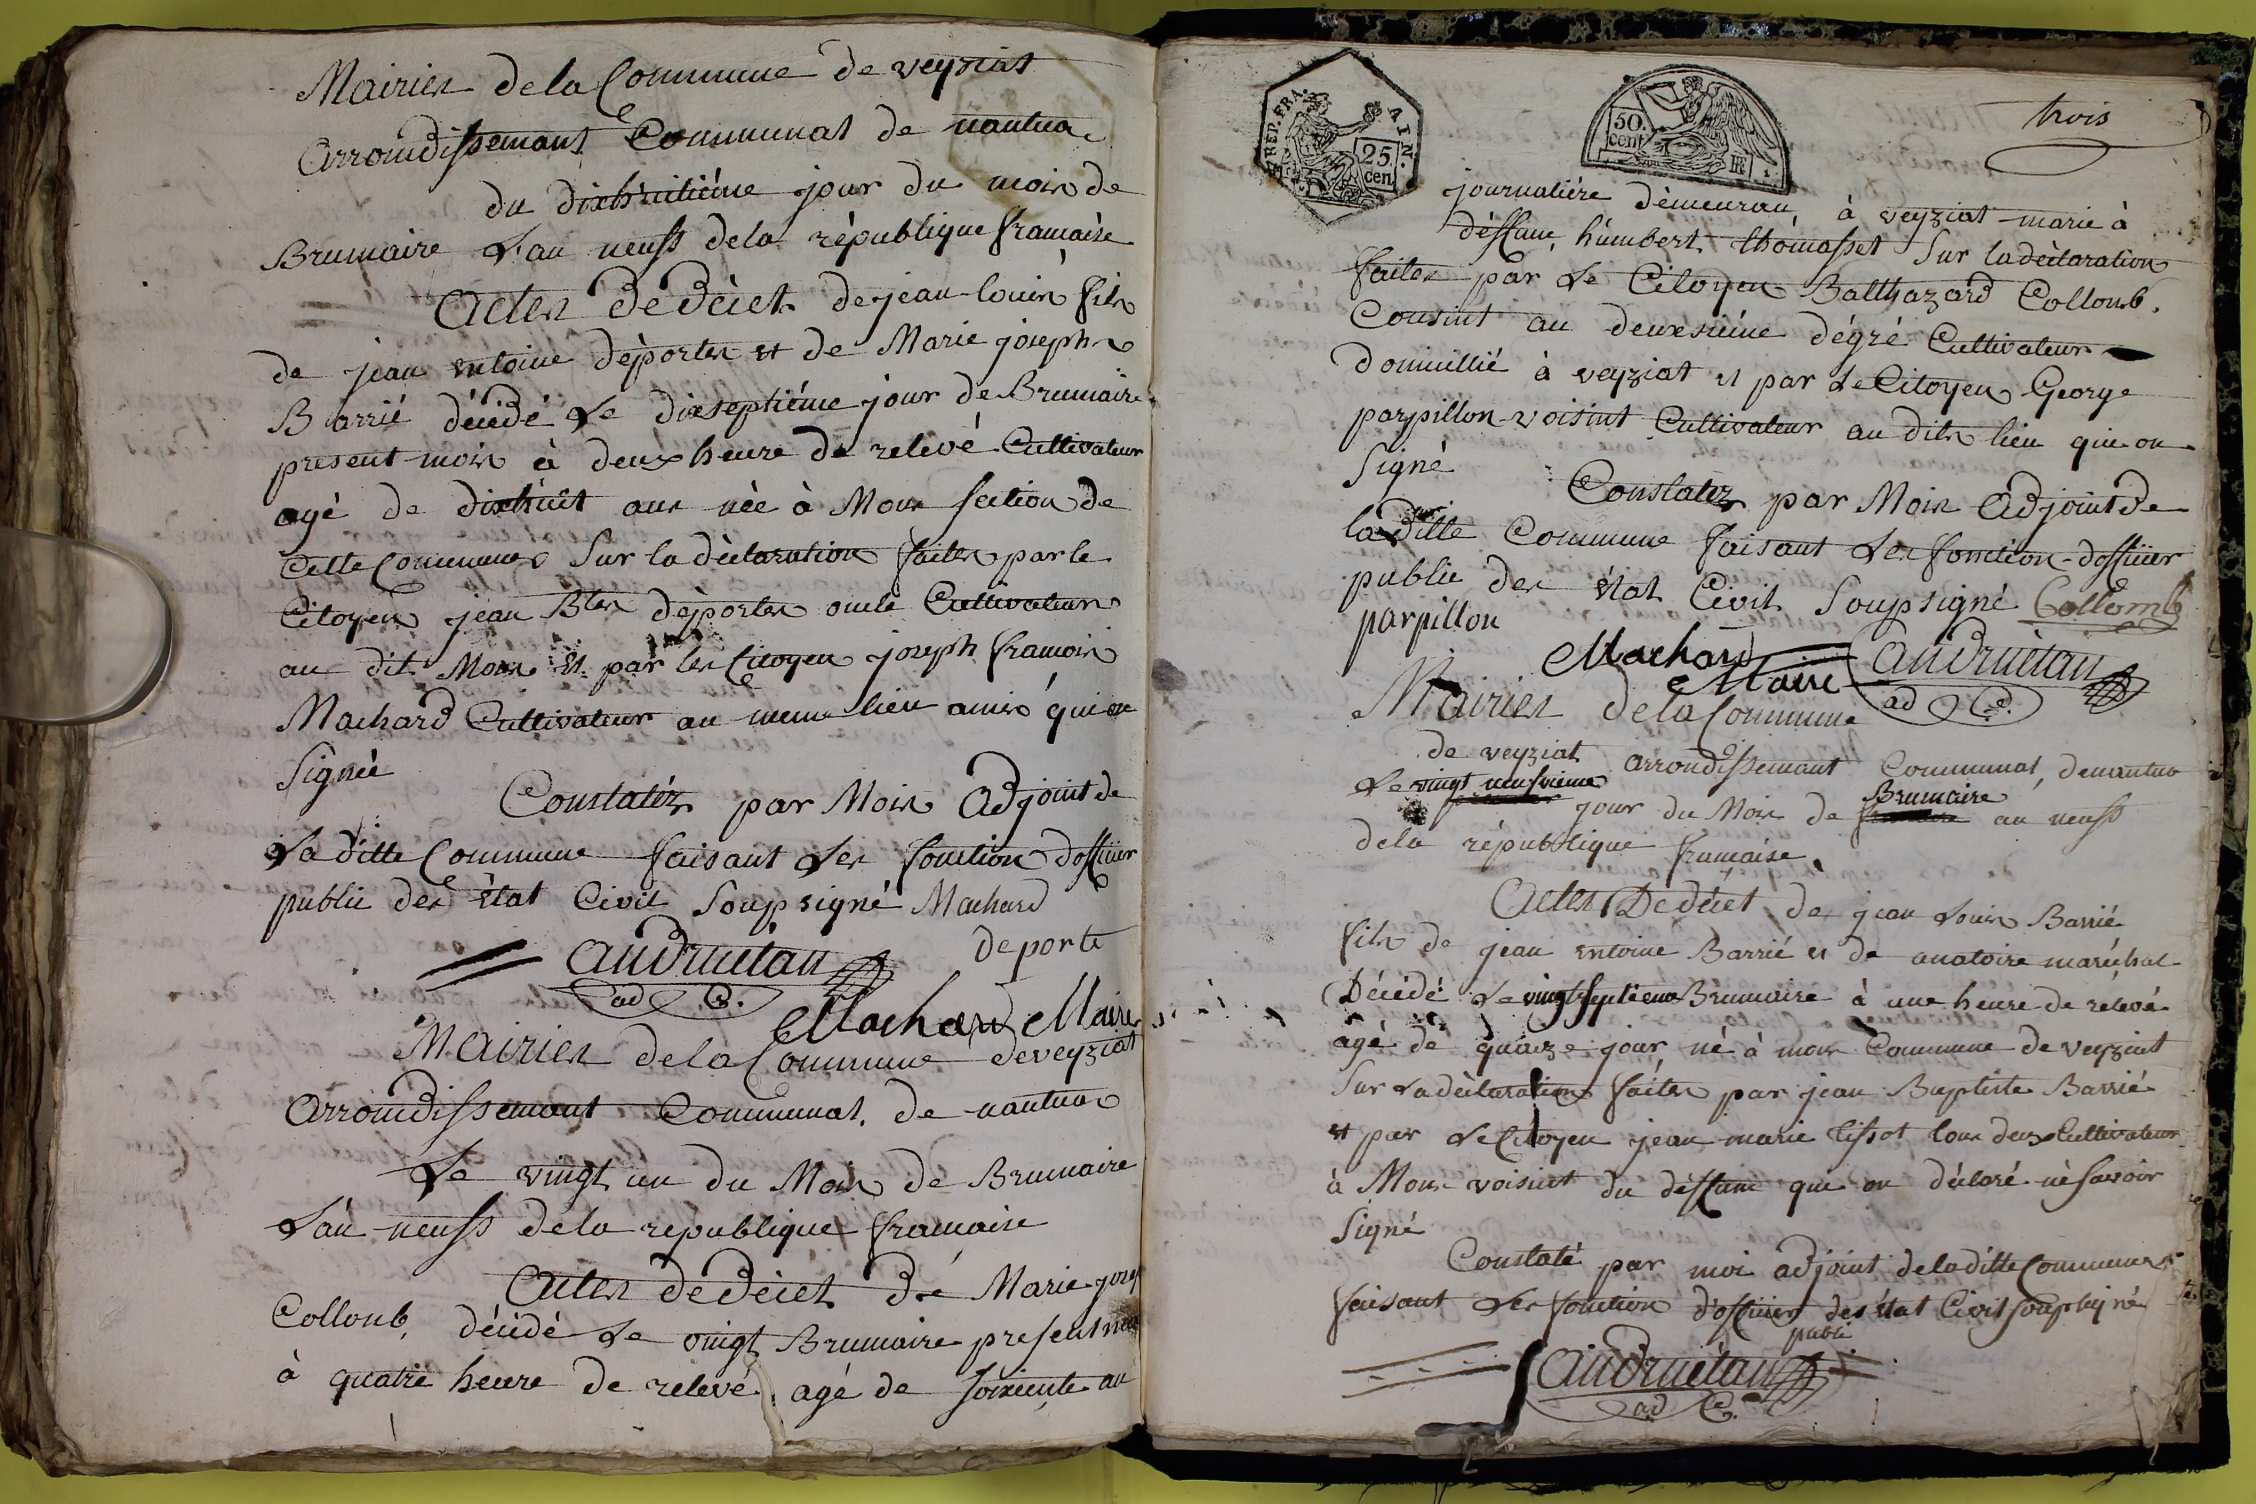 Mairies de la Commune de veyziat
Arrondissemant Communal de nantua
du dixhuitiéme jour du mois de
Brumaire L'an neuff de la république francaise
Actes de dècet de jean-louis fils
de jean entoine déportes et de Marie josephe
Barrié décédé Le dixseptiéme jour de Brumaire
present mois à deux heure de relevé Cultivateur
agé de dixhuit ans née à Mons section de
Cette Commune Sur la déclaration faites par le
Citoyen jean Btes déportes oncle Cultivateur
au dit Mons et par les Citoyen joseph francois
Machard Cultivateur au meme lieu amis qui on
Signée
Constatés par Mois Adjoint de
La ditte Commune faisant Les fonction dofficier
public des êtat Civil Soupsigné Machard
deporte
andruétan
ad Ce.
Machard Maire
Mairies de la Commune de veyziat
Arrondissemant Communal de nantua
Le vingt un du Mois de Brumaire
L'an neuff de la republique francaise
Actes de dècet dé Marie jose
Collonb décédé Le vingt Brumaire present mois
à quatre heure de relevé agé de soixente an
25 cen.
REP. FRA. AIN.
50. cent
trois
journaliére démeuran à veyziat marie à
déffunt humbert thomasset Sur la déclaration
faites par Le Citoyen Balthazard Collonb
Cousint au deuxsiéme dégré Cultivateur
domicillié à veyziat et par Le Citoyen George
parpillon voisint Cultivateur au dits lieu qui on
Signé
Constatés par Mois Adjoint de
la ditte Commune faisant Les fonction dofficier
public des êtat Civil Soupsigné Collomb
parpillon
Machard Maire
andruétan
ad Ce.
Mairies de la Commune
de veyziat arrondissemant Communal de nantua
Le vingt neufvieme jour du Mois de Brumaire an neuff
de la république francaise
Actes De décet de jean Louis Barrié
fils de jean entoine Barrié et de anatoire maréchal
Décédé Le vingt septieme Brumaire à une heure de relevé
agé de quinze jour né à mons Commune de veyziat
Sur La déclaration faites par jean Baptiste Barrié
et par Le Citoyen jean marie tissot tous deux Cultivateur
à Mons voisint du déffunt que on déclaré né savoir
Signé
Constaté par moi adjoint de la ditte Commune
faisant Les fonction d'officier des êtat Civil soupsigné
public
andruétan
ad Ce.